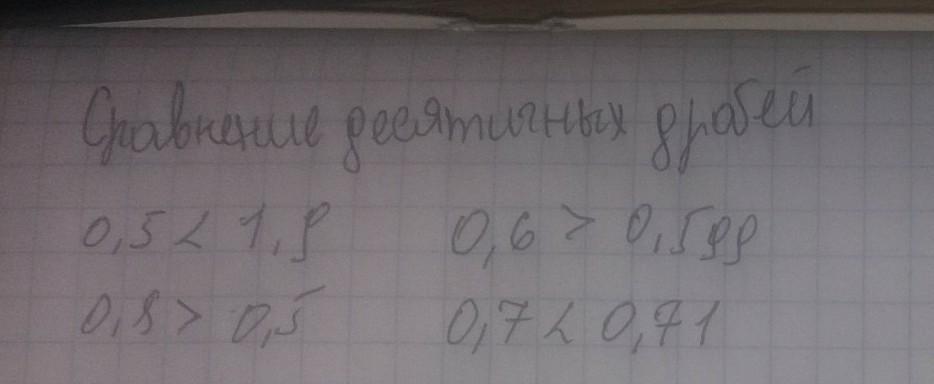 Сравнение десятичных дробей
0,5 < 1,9 0,6 > 0,599
0,8 > 0,5 0,7 < 0,71